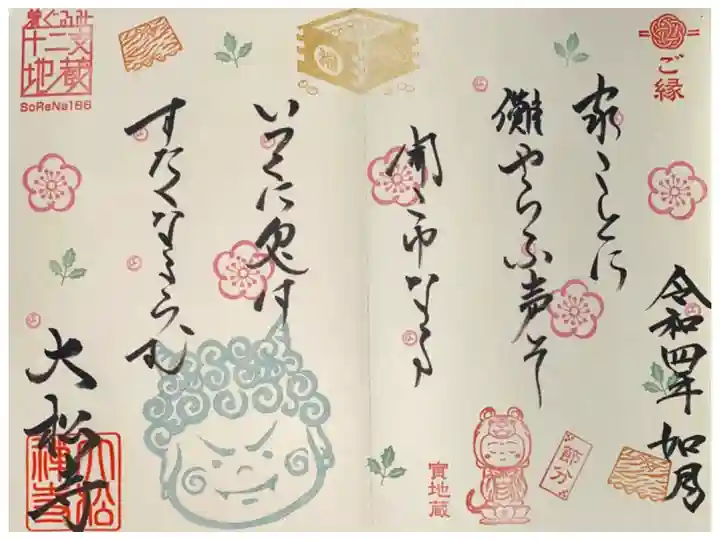 ご縁
令和四年 如月
家ことに
儺やらふ声そ
聞こゆなる
いつくに鬼は
すたくなるらむ
大松寺
着ぐるみ
十二支
地蔵
SoReNa166
福
寅地蔵
節分
大松
禅寺